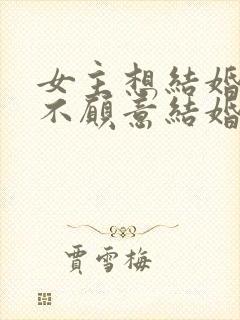 女主想結婚
不願意結婚
賈雪梅